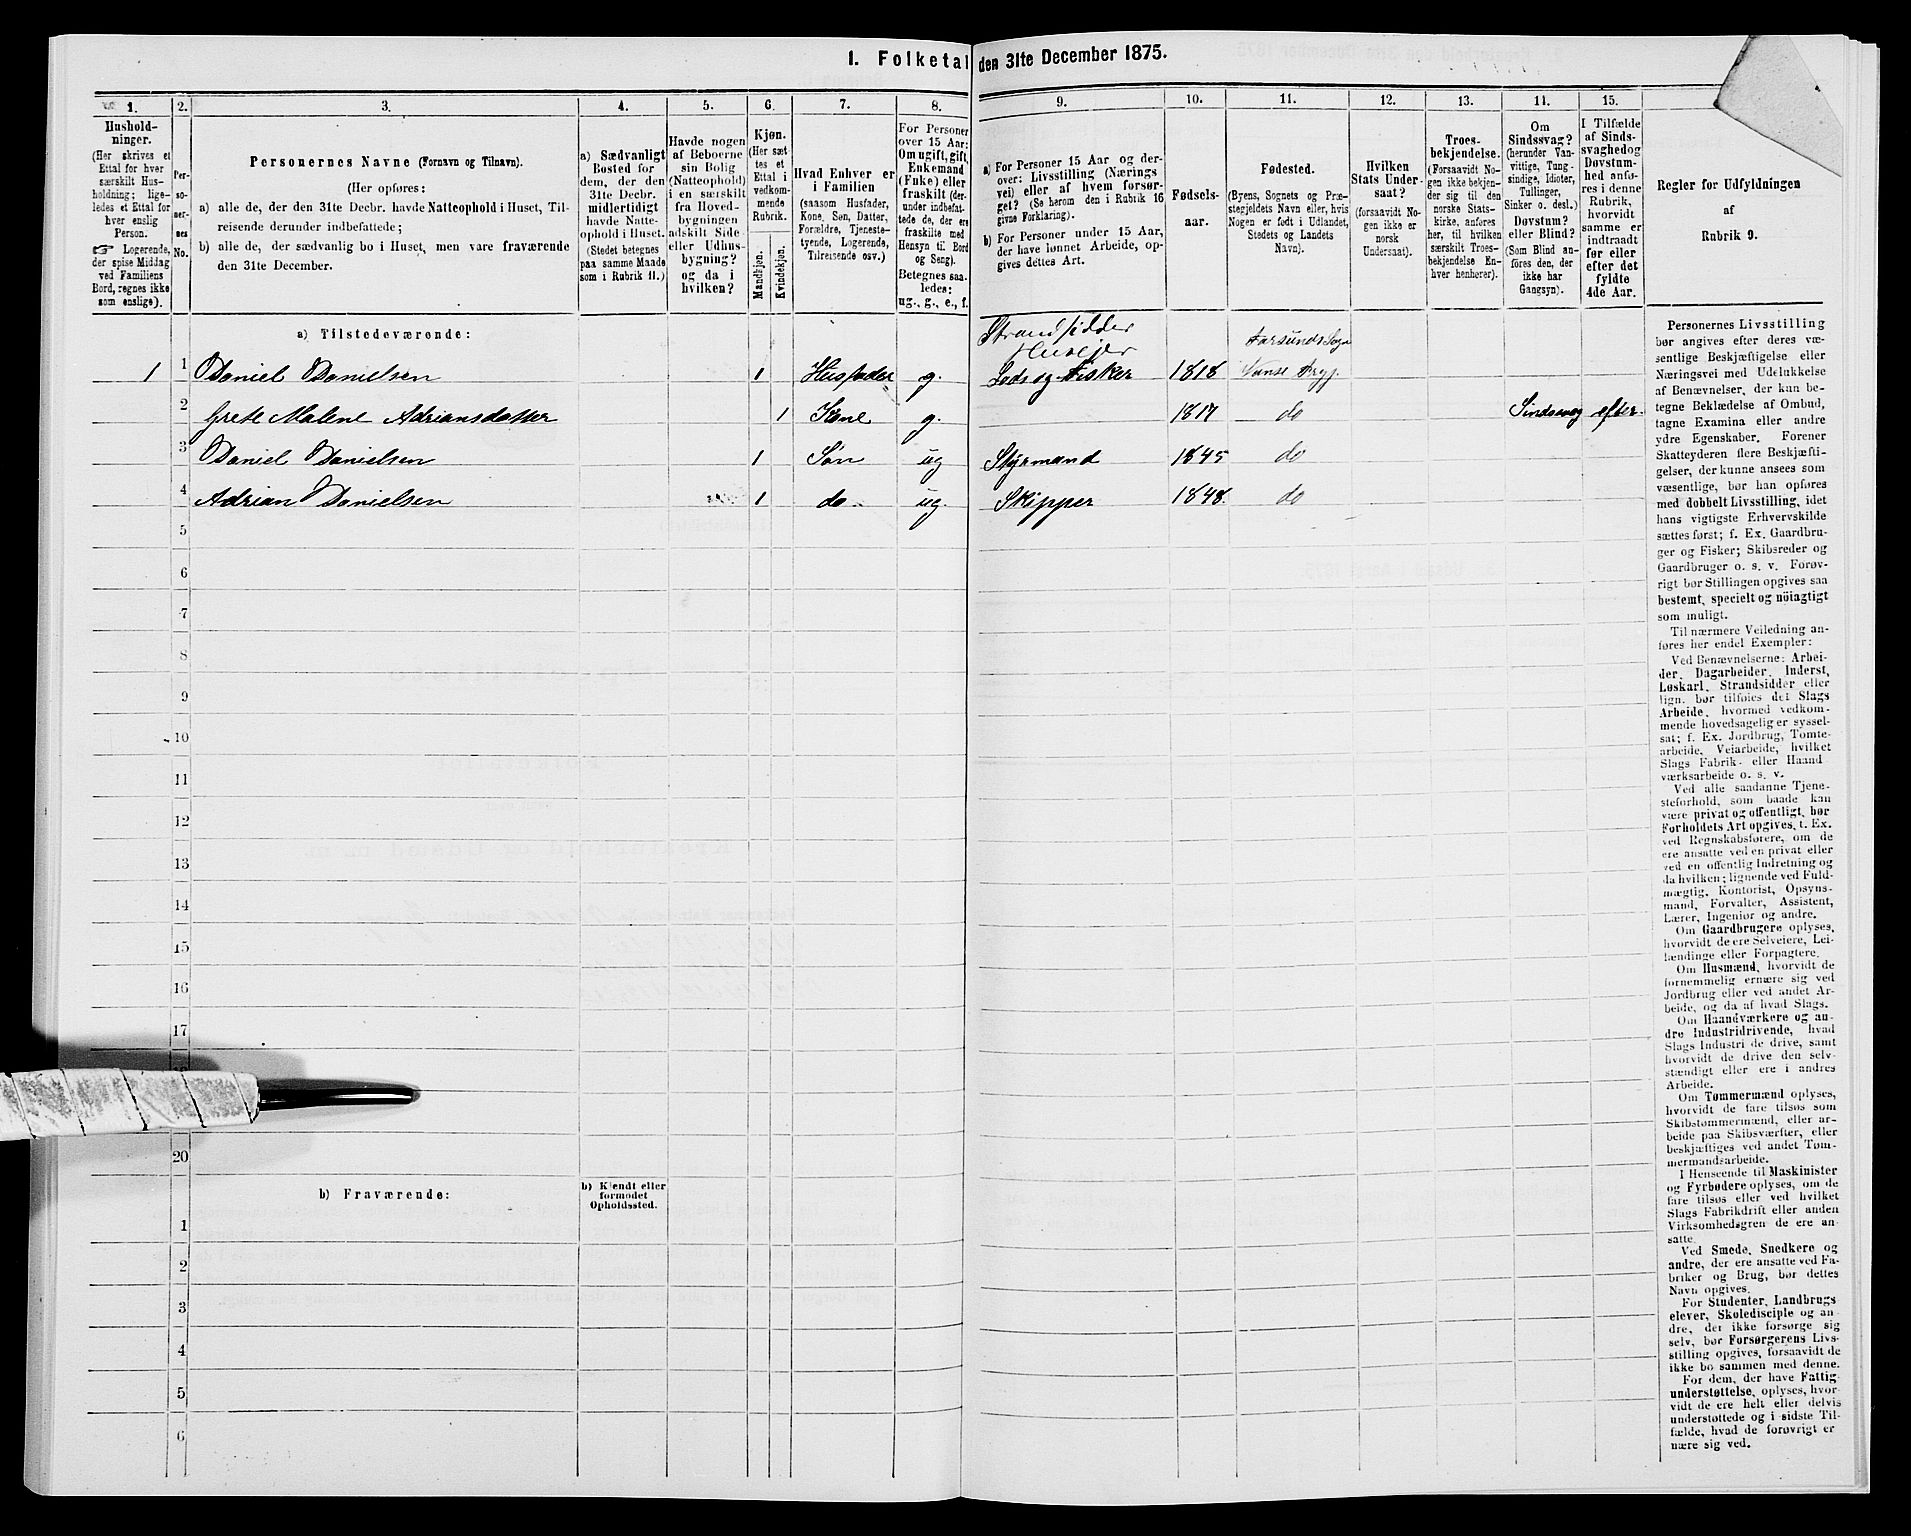 1. Folketal den 31te December 1875.
1. 2. 3. 4. 5. 6. 7. 8. 9. 10. 11. 12. 13. 14. 15.
Hushold-
ninger.
(Her skrives et
Ettal for hver
særskilt Hus-
holdning; lige-
ledes et Ettal for
hver enslig
Person.
☞ Logerende,
der spise Middag
ved Familiens
Bord, regnes ikke
som enslige).
Per-
so-
ner-
nes
No.
Personernes Navne (Fornavn og Tilnavn).
(Her opføres:
a) alle de, der den 31te Decbr. havde Natteophold i Huset, Til-
reisende derunder indbefattede;
b) alle de, der sædvanlig bo i Huset, men vare fraværende
den 31te December.
a) Sædvanligt
Bosted for
dem, der den
31te Decbr.
midlertidigt
havde Natte-
ophold i Huset.
(Stedet betegnes
paa samme Maade
som i Rubrik 11.)
Havde nogen
af Beboerne
sin Bolig
(Natteophold)
i en særskilt
fra Hoved-
bygningen
adskilt Side-
eller Udhus-
bygning?
og da i
hvilken?
Kjøn.
(Her sæt-
tes et
Ettal i
vedkom-
mende
Rubrik.
Mandkjøn.
Kvindekjøn.
Hvad Enhver er
i Familien
(saasom Husfader,
Kone, Søn, Datter,
Forældre, Tjeneste-
tyende, Logerende,
Tilreisende osv.)
For Personer
over 15 Aar:
Om ugift, gift,
Enkemand
(Enke) eller
fraskilt (der-
under indbefat-
tede de, der ere
fraskilte med
Hensyn til Bord
og Seng).
Betegnes saa-
ledes:
ug., g., e., f.
a) For Personer 15 Aar og der-
over: Livsstilling (Nærings-
vei) eller af hvem forsør-
get? (Se herom den i Rubrik 16
givne Forklaring).
b) For Personer under 15 Aar,
der have lønnet Arbeide, op-
gives dettes Art.
Fødsels-
aar.
Fødested.
(Byens, Sognets og Præ-
stegjeldets Navn eller, hvis
Nogen er født i Udlandet,
Stedets og Landets
Navn).
Hvilken
Stats Under-
saat?
(forsaavidt No-
gen ikke er
norsk
Undersaat).
Troes-
bekjendelse.
(Forsaavidt No-
gen ikke bekjen-
der sig til den
norske Stats-
kirke, anføres
her, til hvilken
særskilt Troes-
bekjendelse En-
hver henhører).
Om
Sindssvag?
(herunder Van-
vittige, Tung-
sindige, Idioter,
Tullinger,
Sinker o. desl.)
Døvstum?
eller Blind?
(Som Blind an-
føres den, der
ikke har
Gangsyn).
I Tilfælde
af Sinds-
svaghed og
Døvstum-
hed anfø-
res i denne
Rubrik,
hvorvidt
samme er
indtraadt
før eller
efter det
fyldte
4de Aar.
Regler for Udfyldningen
af
Rubrik 9.
a) Tilstedeværende:
Strandsidder Farsunds Sogn
Huseier
1 1 Daniel Danielsen 1 Husfader g. Lods og Fisker 1818 Vanse
2 Grete Malene Adriansdatter 1 Kone g. 1817 do Sindssvag efter
3 Daniel Danielsen 1 Søn ug Styrmand 1845 do
4 Adrian Danielsen 1 do ug. Skipper 1848. do
5
6
7
8
9
10
11
12
13
14
15
16
17
20
b) Fraværende: b) Kjendt eller
formodet
Opholdssted.
1
2
3
4
5
6
Personernes Livsstilling
bør angives efter deres væ-
sentlige Beskjæftigelse eller
Næringsvei med Udelukkelse
af Benævnelser, der kun be-
tegne Beklædelse af Ombud,
tagne Examina eller andre
ydre Egenskaber. Forener
Skatteyderen flere Beskjæfti-
gelser, der kunne ansees som
væsentlige, bør han opføres
med dobbelt Livsstilling, idet
hans vigtigste Erhvervskilde
sættes først; f. Ex. Gaardbru-
ger og Fisker; Skibsreder og
Gaardbruger o. s. v. Forøv-
rigt bør Stillingen opgives saa
bestemt, specielt og nöiagtigt
som muligt.
Til nærmere Veiledning an-
føres her endel Exempler:
Ved Benævnelserne: Arbei-
der, Dagarbeider, Inderst,
Løskarl, Strandsidder eller
lign. bør tilføies det Slags
Arbeide, hvormed vedkom-
mende hovedsagelig er syssel-
sat; f. Ex. Jordbrug, Tomte-
arbeide, Veiarbeide, hvilket
Slags Fabrik- eller Haand-
værksarbeide o. s. v.
Ved alle saadanne Tjene-
steforhold, som baade kan
være privat og offentligt, bør
Forholdets Art opgives, f. Ex.
ved Regnskabsførere, om de
ere ansatte ved en privat eller
ved en offentlig Indretning og
da hvilken; lignende ved Fuld-
mægtig, Kontorist, Opsyns-
mand, Forvalter, Assistent,
Lærer, Ingeniør og andre.
Om Gaardbrugere oplyses,
hvorvidt de ere Selveiere, Lei-
lændinge eller Forpagtere.
Om Husmænd, hvorvidt de
fornemmelig ernære sig ved
Jordbrug eller ved andet Ar-
beide, og da af hvad Slags.
Om Haandværkere og an-
dre Industridrivende, hvad
Slags Industri de drive, samt
hvorvidt de drive den selv-
stændigt eller ere i andres
Arbeide.
Om Tømmermænd oplyses,
hvorvidt de fare tilsøs som
Skibstømmermænd, eller ar-
beide paa Skibsværfter, eller
beskjæftiges ved andet Tøm-
mermandsarbeide.
I Henseende til Maskinister
og Fyrbødere oplyses, om de
fare tilsøs eller ved hvilket
Slags Fabrikdrift eller anden
Virksomhedsgren de ere an-
satte.
Ved Smede, Snedkere og
andre, der ere ansatte ved Fa-
briker og Brug, bør dettes
Navn opgives.
For Studenter, Landbrugs-
elever, Skoledisciple og an-
dre, der ikke forsørge sig
selv, bør Forsørgerens Livs-
stilling opgives, forsaavidt de
ikke bo sammen med denne.
For dem, der have Fattig-
understøttelse, oplyses, hvor-
vidt de ere helt eller delvis
understøttede og i sidste Til-
fælde, hvad de forøvrigt er-
nære sig ved.